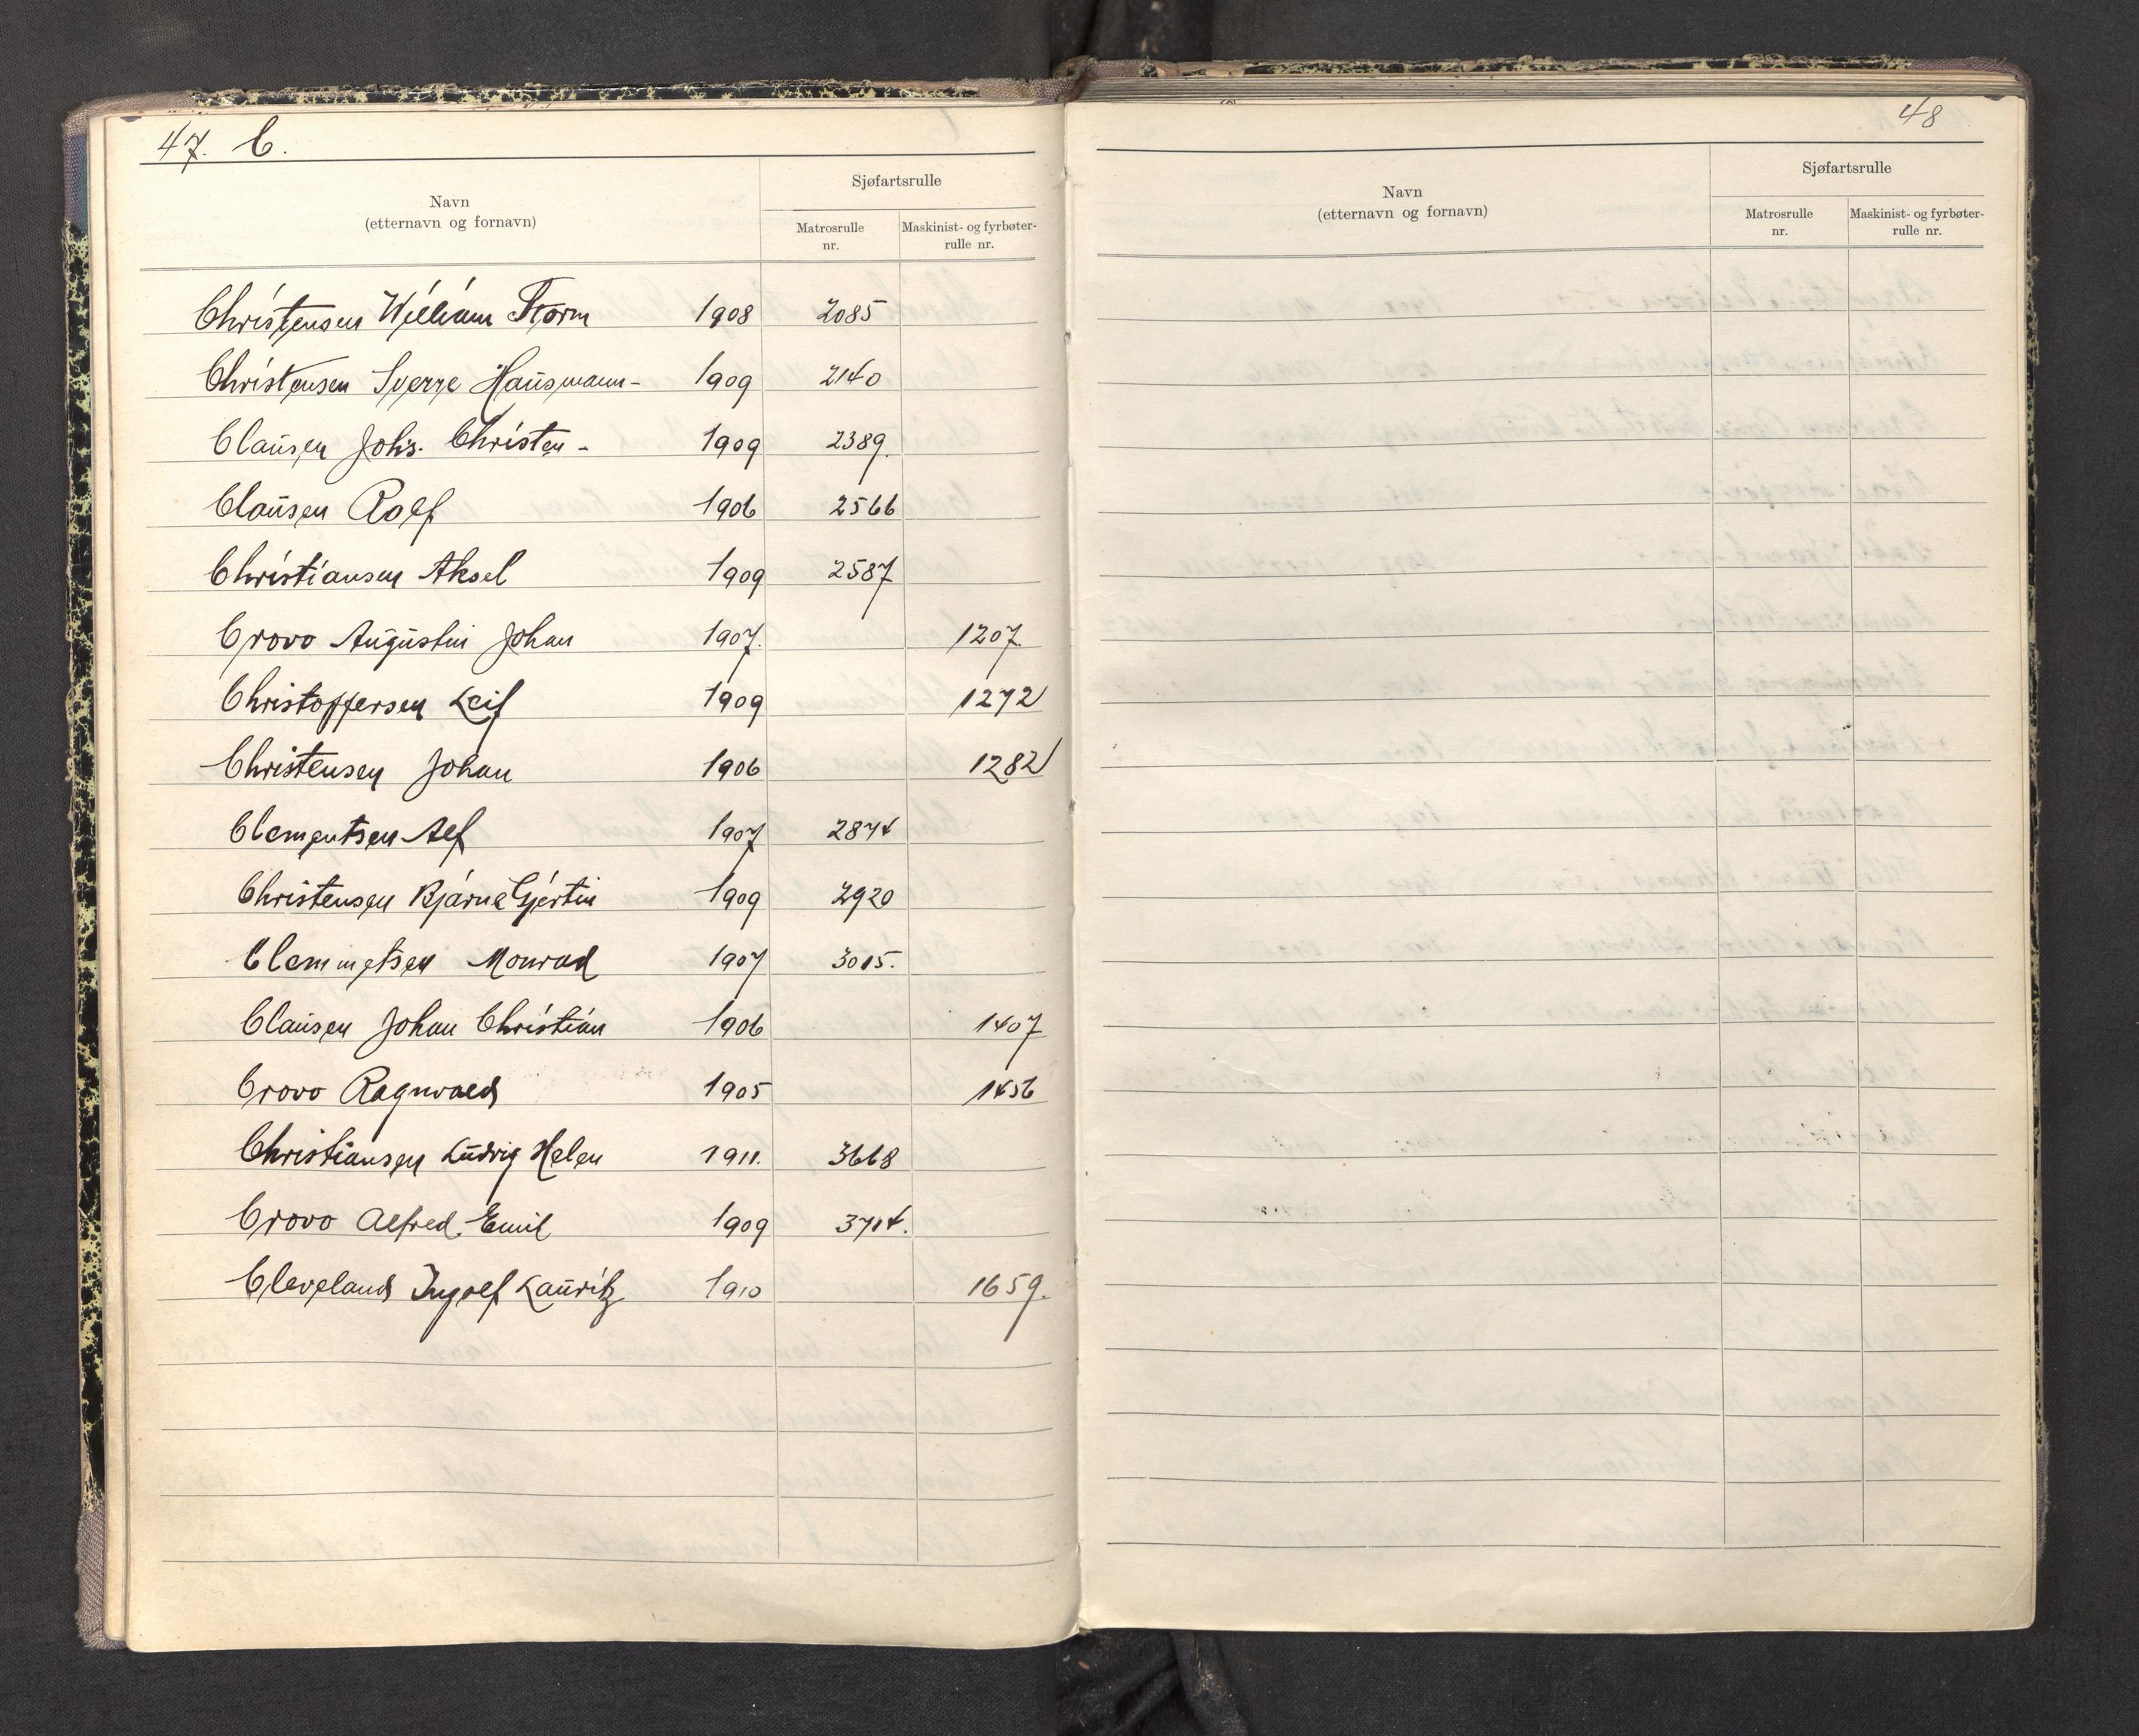 47. C.
Navn
(etternavn og fornavn)
Sjøfartsrulle
Matrosrulle
nr.
Maskinist- og fyrbøter-
rulle nr.
Christensen William Storm 1908 2085
Christensen Sverre Hausmann- 1909 2140
Clausen Johs. Christen - 1909 2389.
Clausen Rolf 1906 2566
Christiansen Aksel 1909 2587
Crovo Augustin Johan 1907. 1207
Christoffersen Leif 1909 1272
Christensen Johan 1906 1282
Clementsen Alf 1907 2874
Christensen Bjarne Gjertin 1909 2920
Clemmetsen Monrad 1907 3015.
Clausen Johan Christian 1906 1407
Crovo Ragnvald 1905 1456
Christiansen Ludvig Helen 1911. 3668
Crovo Alfred Emil 1909 3714.
Cleveland Ingolf Lauritz 1910 1659.
48
Navn
(etternavn og fornavn)
Sjøfartsrulle
Matrosrulle
nr.
Maskinist- og fyrbøter-
rulle nr.